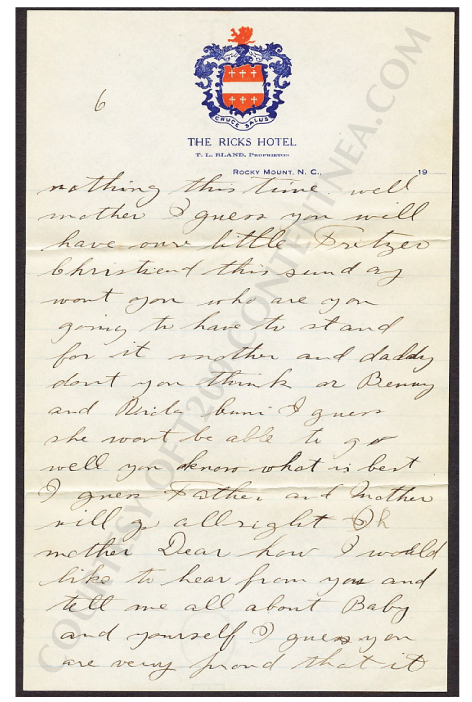 6
CRUCE SALUS
THE RICKS HOTEL
T. L. BLAND, PROPRIETOR
ROCKY MOUNT, N. C., 19
nothing this time. well
mother I guess you will
have our little Fritzer
Christiend this sunday
wont you who are you
going to have to stand
for it mother and daddy
dont you think or Benny
and I guess
she wont be able to go
well you know what is best
I guess Father and Mother
will go allright Oh
mother Dear how I would
like to hear from you and
tell me all about Baby
and yourself I guess you
are verry proud that it
COURTESY OF T209-CONTENTNEA.COM